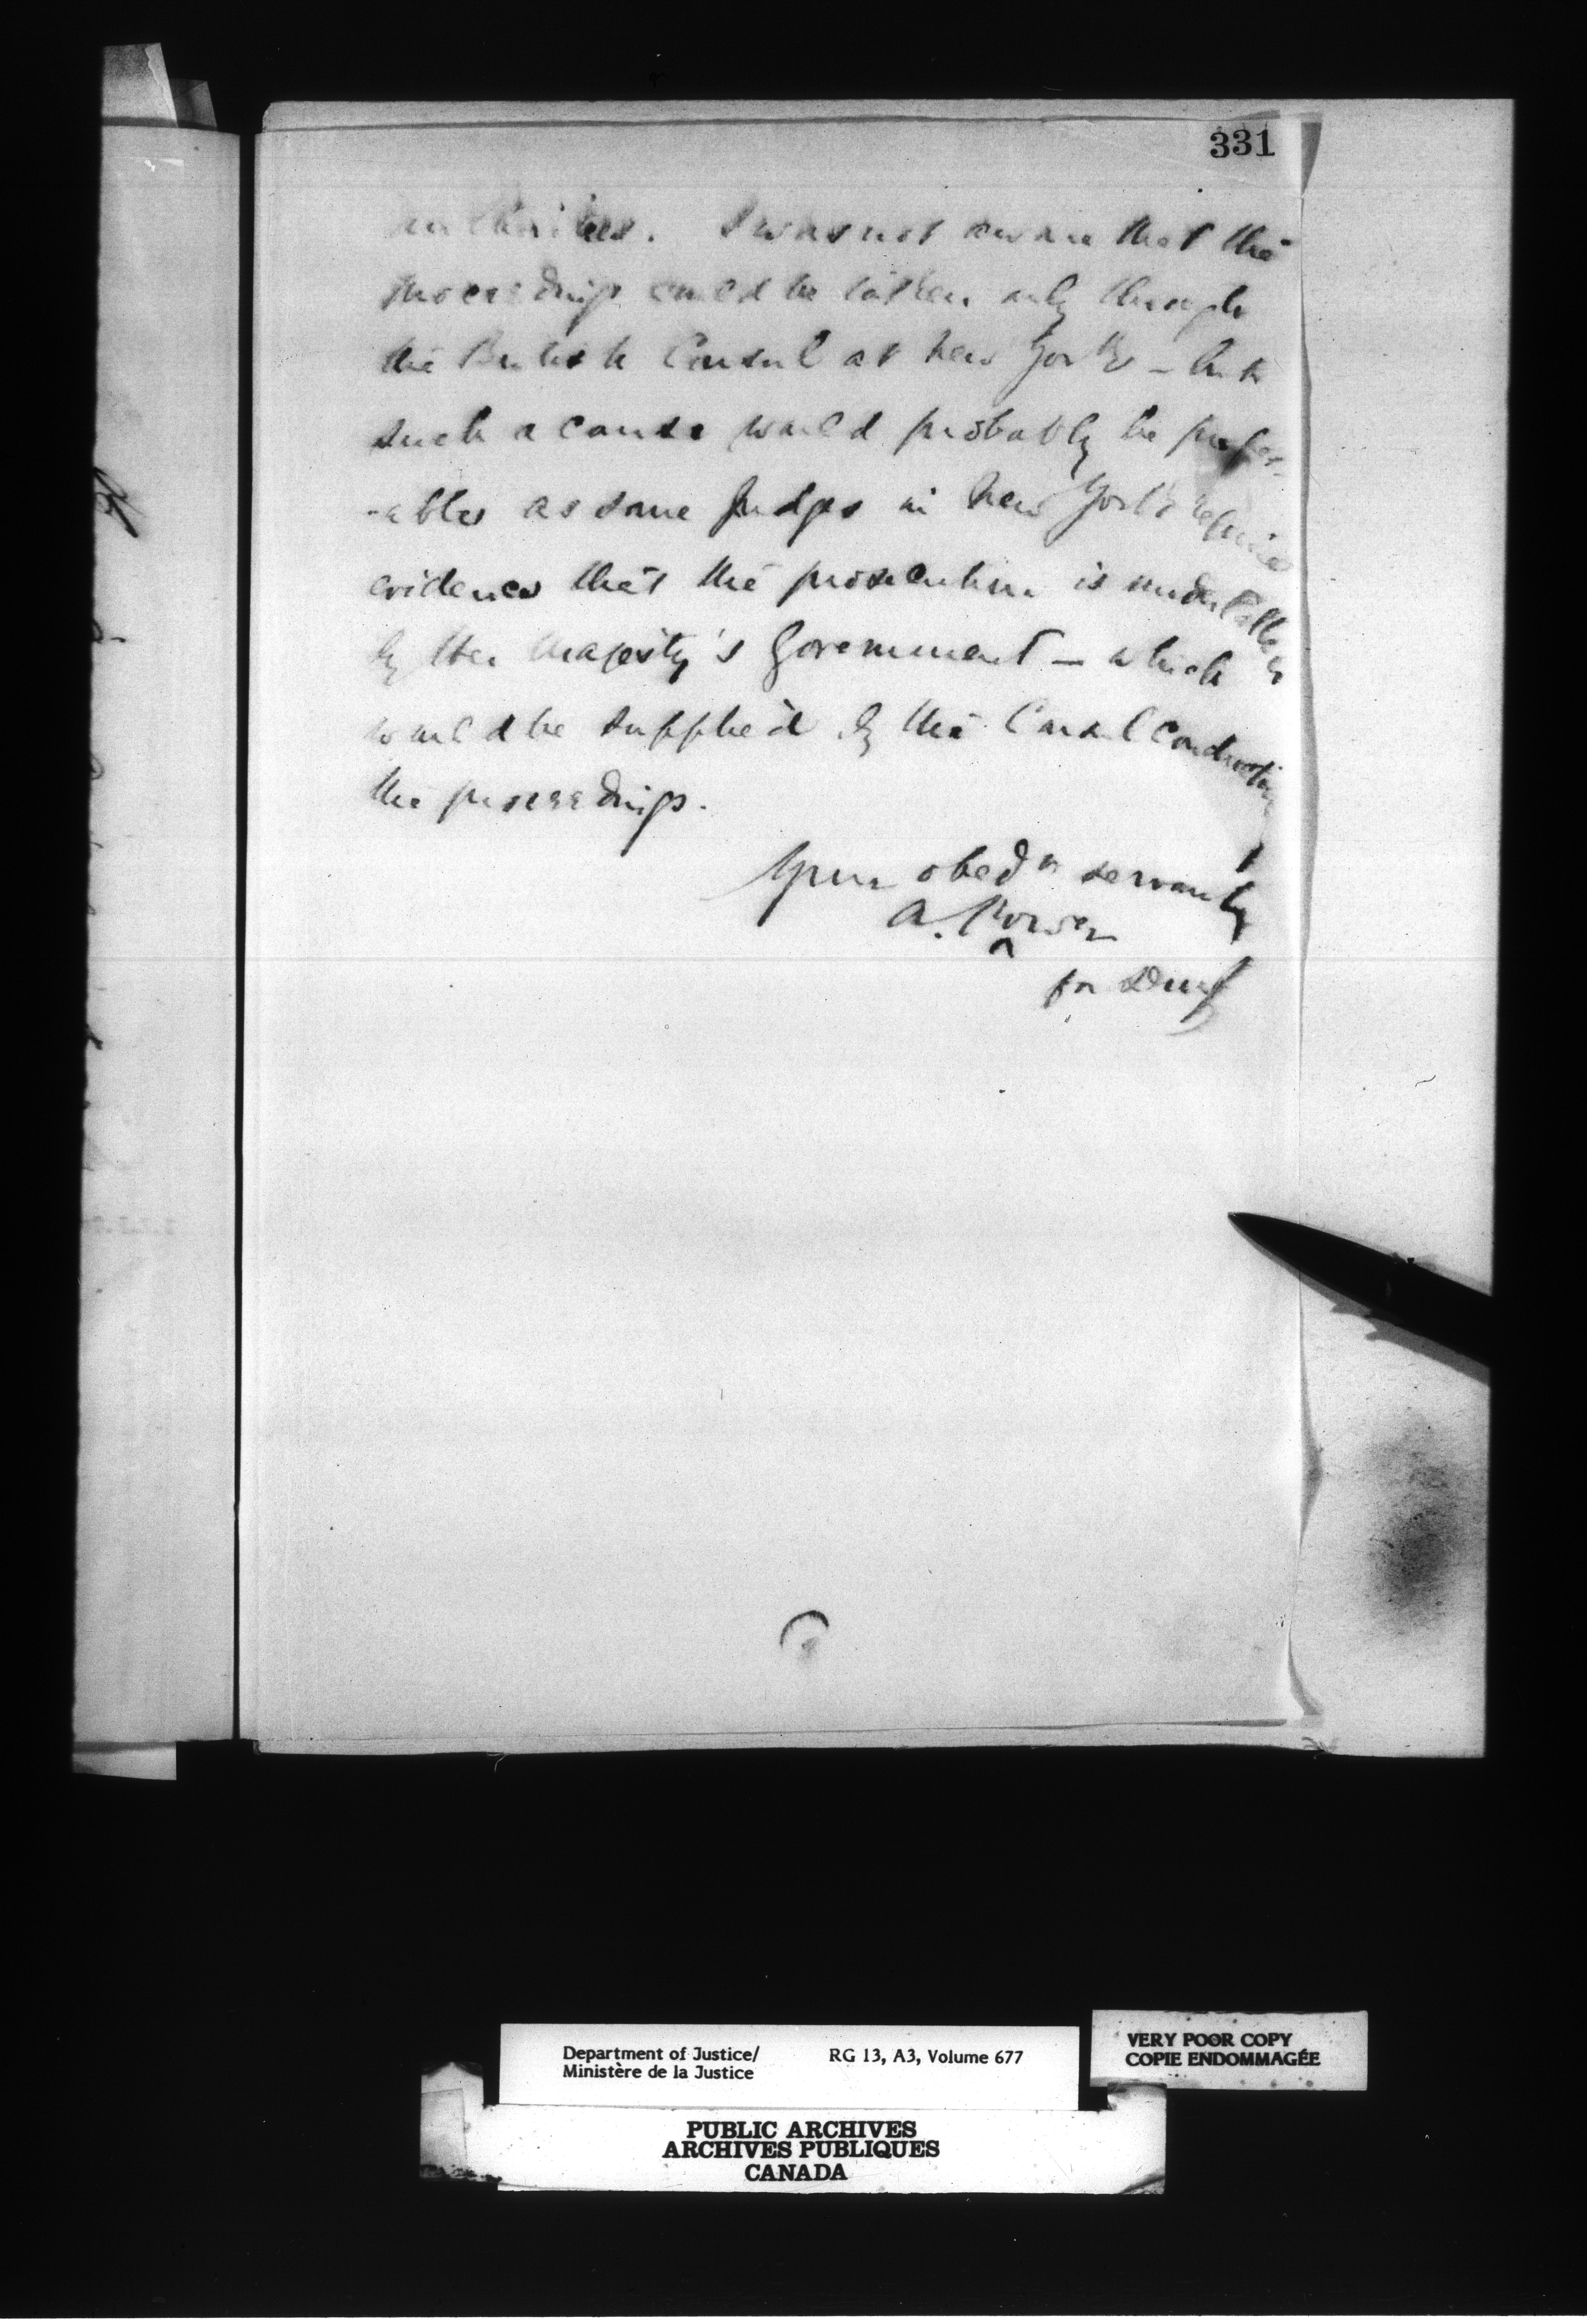 331
authorities. I was not aware that the
proceedings could be taken only through
the British Consul at New York – but
such a course would probably be prefer-
-able as some Judges in New York require
evidence that the prosecution is undertaken
by Her Majesty's Government – which
would be supplied by the Consul conducting
the proceedings.
Your obedt servant
A. Power
for DMJ
Department of Justice/ RG 13, A3, Volume 677
Ministère de la Justice
VERY POOR COPY
COPIE ENDOMMAGÉE
PUBLIC ARCHIVES
ARCHIVES PUBLIQUES
CANADA